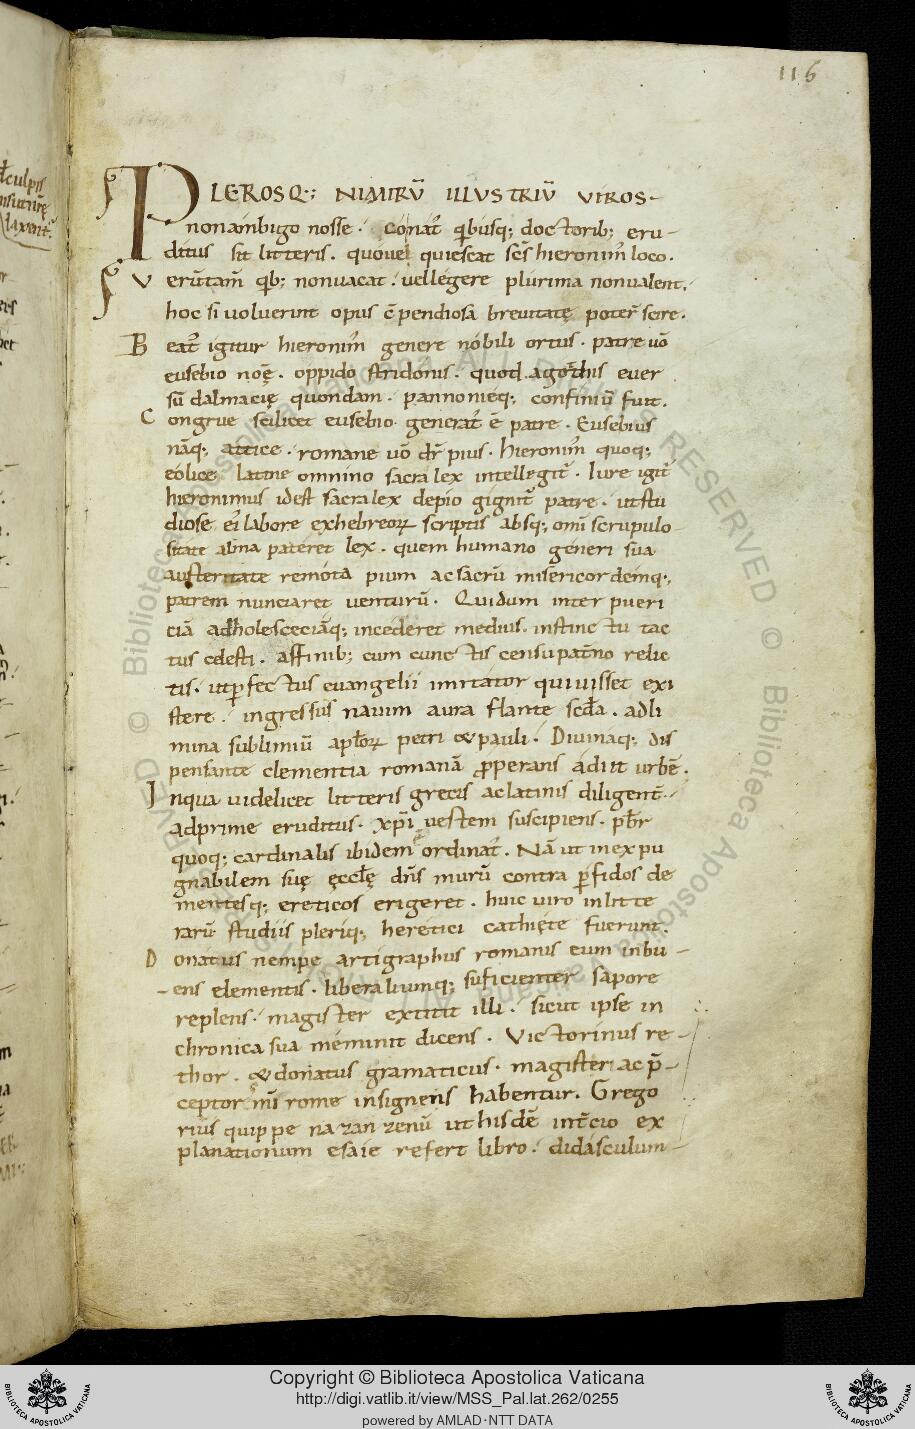 116
PLEROSQ; NIMIRŪ ILLVSTRIŪ VIROS
non ambigo nosse. Conat̄ q̄ibusq; doctorib; eru-
ditus sit litteris. quove quiescat sc̄s hieronim̄ loco.
Verūtam̄ q̄b; non vacat. vel legere plurima non valent.
hoc si voluerint opus c̄pendiosa brevitatę poter̄ scire.
Beat̄ igitur hieronim̄ genere nobili ortus. patre vō
eusebio noē. oppido stridonis. quod a gothis ever
sū dalmacię quondam. pannonięq; confiniū fuit.
Congrue scilicet eusebio generat̄ ē patre. Eusebius
nāq; attice. romane vō dr̄ pius. hieronim̄ quoq;
eolice latine omnino sacra lex intellegit̄. Iure igit̄
hieronimus idest sacra lex de pio gignit̄ patre. ut stu
diose ei' labore ex hebreoꝝ scriptis absq; omī scrupulo
sitate alma pateret lex. quem humano generi sua
austeritate remota pium ac sacrū misericordemq;
patrem nunciaret venturū. Qui dum inter pueri
ciā adholescenciāq; incederet medius. instinctu tac
tus cęlesti. affinib; cum cunctis censu pat̄no relic
tis. ut ꝑfectus evangelii imitator quivisset exi
stere. ingressus navim aura flante scd̄a. ad li
mina sublimiū apl̄oꝝ petri & pauli. Divinaq; dis
pensante clementia romanā ꝓperans adiit urbē.
In qua videlicet litteris grecis ac latinis diligent̄
adprime eruditus. xp̄i vestem suscipiens. pb̄r
quoq; cardinalis ibidem ordinat̄. Nā ut inexpu
gnabilem suę ęccl̄ę dn̄s murū contra ꝑfidos de
mentesq; ereticos erigeret. huic viro in litte
rarū studiis pleriq; heretici fuerunt.
Donatus nempe artigraphus romanis eum inbu-
ens elementis. liberaliumq; suficienter sapore
replens. magister extitit illi. sicut ipse in
chronica sua meminit dicens. Victorinus re-
thor. & donatus gramaticus. magister ac p̄-
ceptor m̄i rome insignens habentur. Grego
rius quippe nazanzenū ut hisdē int̄cio ex
planationum esaie refert libro. didasculum-
Copyright © Biblioteca Apostolica Vaticana
http://digi.vatlib.it/view/MSS_Pal.lat.262/0255
powered by AMLAD·NTT DATA